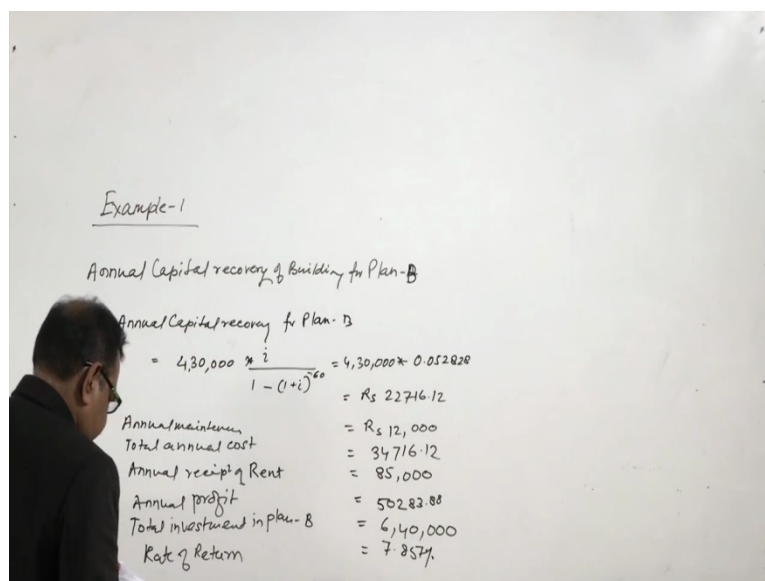 Example-1
Annual Capital recovery of Building for Plan-B
Annual Capital recovery for Plan-B
= 4,30,000 * i / 1 - (1+i)^-60 = 4,30,000 * 0.052828
= Rs 22716.12
Annual maintenen = Rs 12,000
Total annual cost = 34716.12
Annual receipt of Rent = 85,000
Annual profit = 50283.88
Total investment in plan-B = 6,40,000
Rate of Return = 7.857%